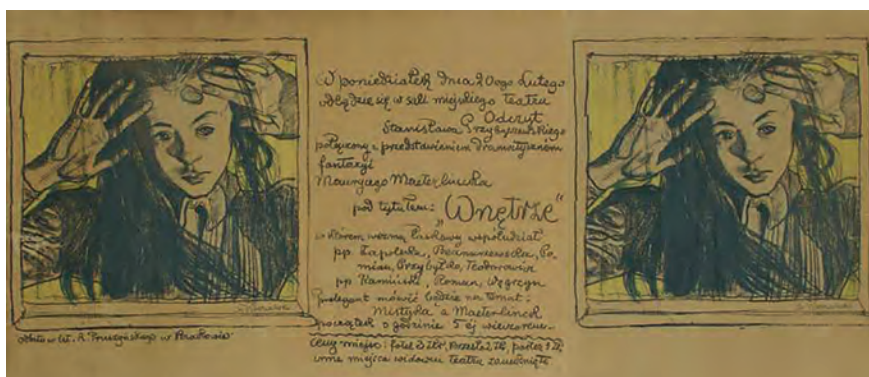 W poniedziałek dnia 20ego Lutego
odbędzie się w sali miejskiego teatru
Odczyt
Stanisława Przybyszewskiego
połączony z przedstawieniem dramatycznem
fantazyi
Maurycego Maeterlincka
pod tytułem: „Wnętrze"
w którem wezmą łaskawy współudział
pp. Zapolska, Bednarzewska, Po-
mian, Przybyłko, Teodorowicz
pp. Kamiński, Roman, Węgrzyn
Prelegent mówić będzie na temat:
Mistyka a Maeterlinck
początek o godzinie 5ej wieczorem.
Ceny miejsc: fotel 3 złr, krzesło 2 złr, parter 1 złr,
inne miejsca widowni teatru zamknięte
odbito w lit. A. Pruszyńskiego w Krakowie